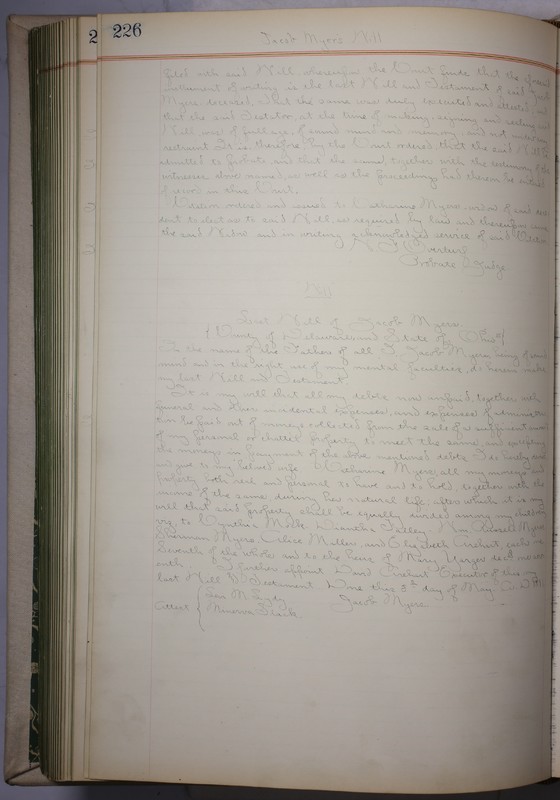 226
2
Jacob Myers Will
filed with said Will, whereupon the Court finds that the aforesaid
instrument of writing is the last Will and Testament of said Jacob
Myers, deceased, that the same was duly executed and attested, and
that the said Testator, at the time of making, signing and sealing said
Will was of full age, of sound mind and memory, and not under any
restraint. It is therefore by the Court ordered that the said Will be
admitted to probate and that the same, together with the testimony of the
witnesses above named, as well as the proceedings had therein be entered
of record in this Court.
Citation ordered and issued to Catharine Myers, widow of said
dent to elect as to said Will, as required by law and thereupon came
the said Widow and in writing acknowledged service of said Citation
Overturf
Probate Judge
Will
Last Will of Jacob Myers.
County of Delaware and State of Ohio
In the name of the Father of all I, Jacob Myers, being of sound
mind and in the right use of my mental faculties, do herein make
my last Will and Testament.
It is my will that all my debts now unpaid, together with
funeral and other incidental expenses, and expenses of administra
tion be paid out of moneys collected from the sale of a sufficient amount
of my personal or chattel property to meet the same, and
the moneys in payment of the above mentioned debts. I do hereby
and give to my beloved wife Catharine Myers, all my moneys and
property both real and personal to have and to hold, together with the
income of the same, during her natural life, after which it is my
will that said property shall be equally divided among my children
viz, to Cynthia Diantha Myers
Sherman Myers, Miller, and Elizabeth each one
seventh of the whole and to the heirs of Mary decd one sev
enth. I further appoint David Executor of this my
last Will & Testament. Done this 3d day of May A.D.
Attest
Jacob Myers